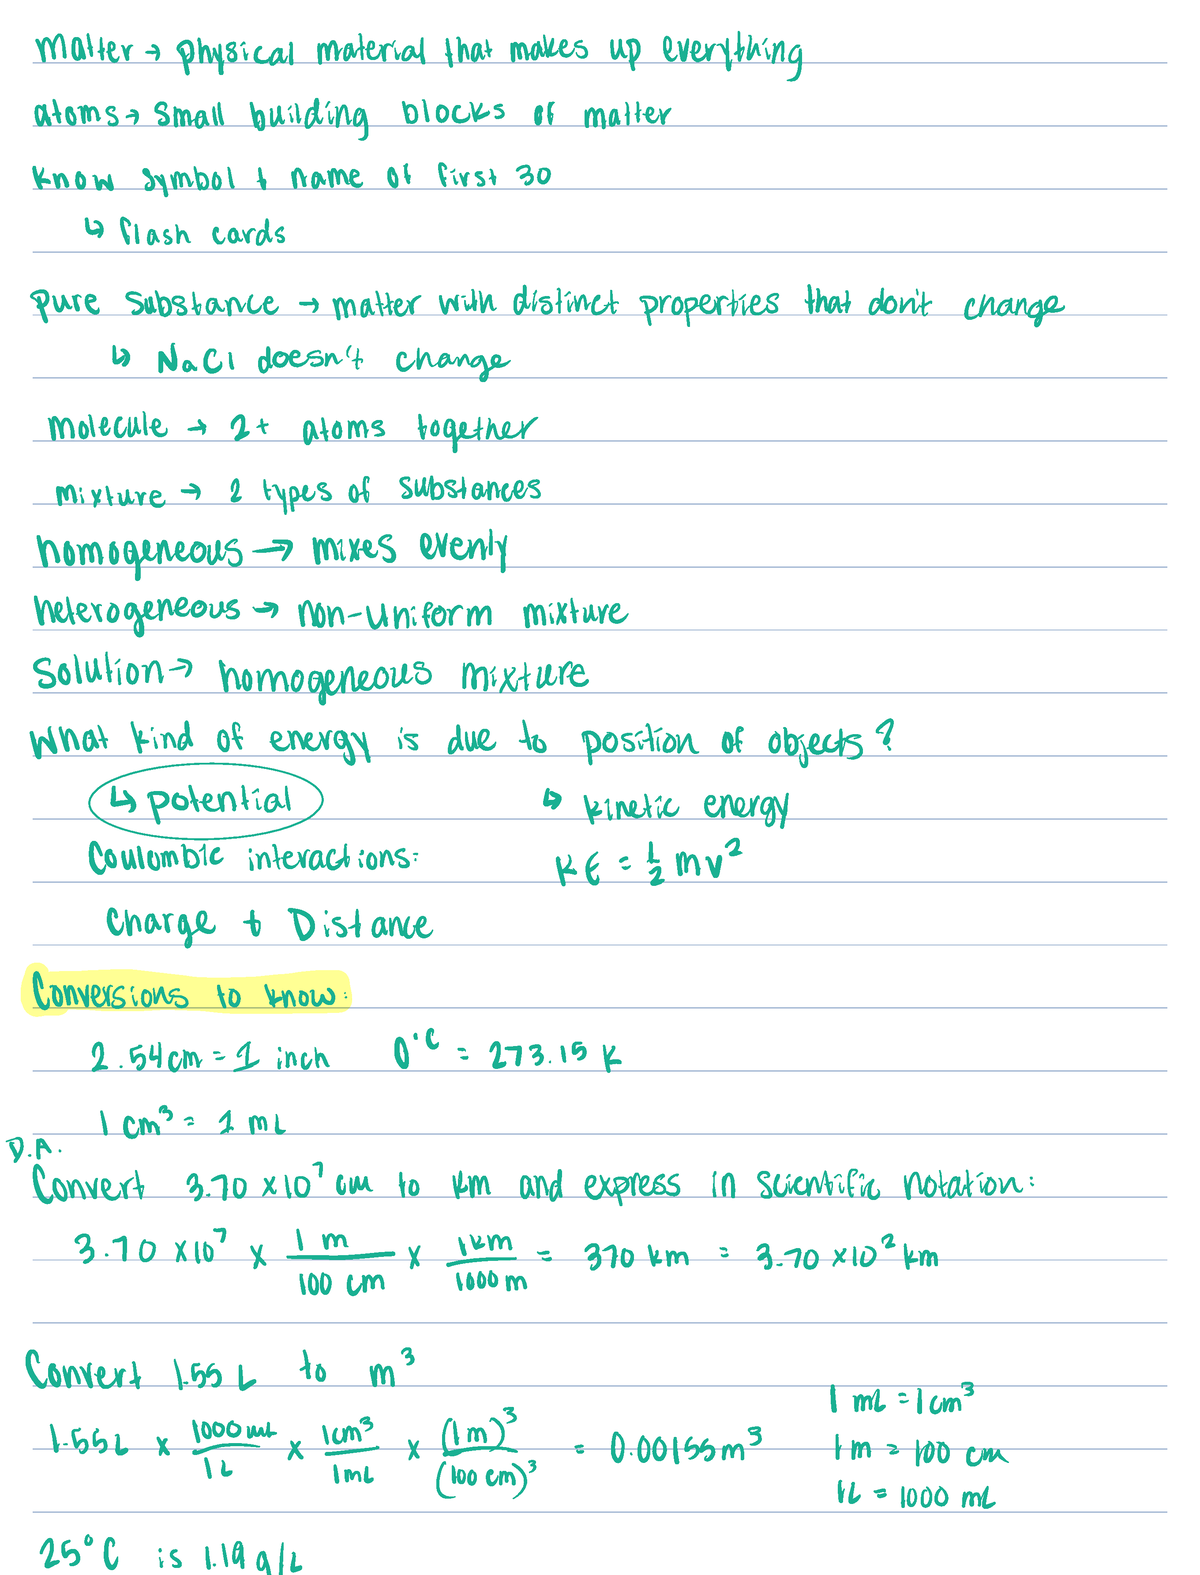 matter → physical material that makes up everything
atoms → small building blocks of matter
know symbol + name of first 30
↳ flash cards
pure substance → matter with distinct properties that don't change
↳ NaCl doesn't change
molecule → 2+ atoms together
mixture → 2 types of substances
homogeneous → mixes evenly
heterogeneous → non-uniform mixture
Solution → homogeneous mixture
What kind of energy is due to position of objects?
↳ potential ↳ kinetic energy
Coulombic interactions: KE = 1/2 mv²
Charge + Distance
Conversions to know:
2.54cm = 1 inch 0°C = 273.15 K
1 cm³ = 1 mL
D.A.
Convert 3.70 x10⁷ cm to km and express in scientific notation:
3.70 x10⁷ x 1 m / 100 cm x 1km / 1000 m = 370 km = 3.70 x10² km
Convert 1.55 L to m³
1 mL = 1 cm³
1.55L x 1000 mL / 1L x 1cm³ / 1mL x (1m)³ / (100 cm)³ = 0.00155m³
1m = 100 cm
1L = 1000 mL
25°C is 1.19 g/L